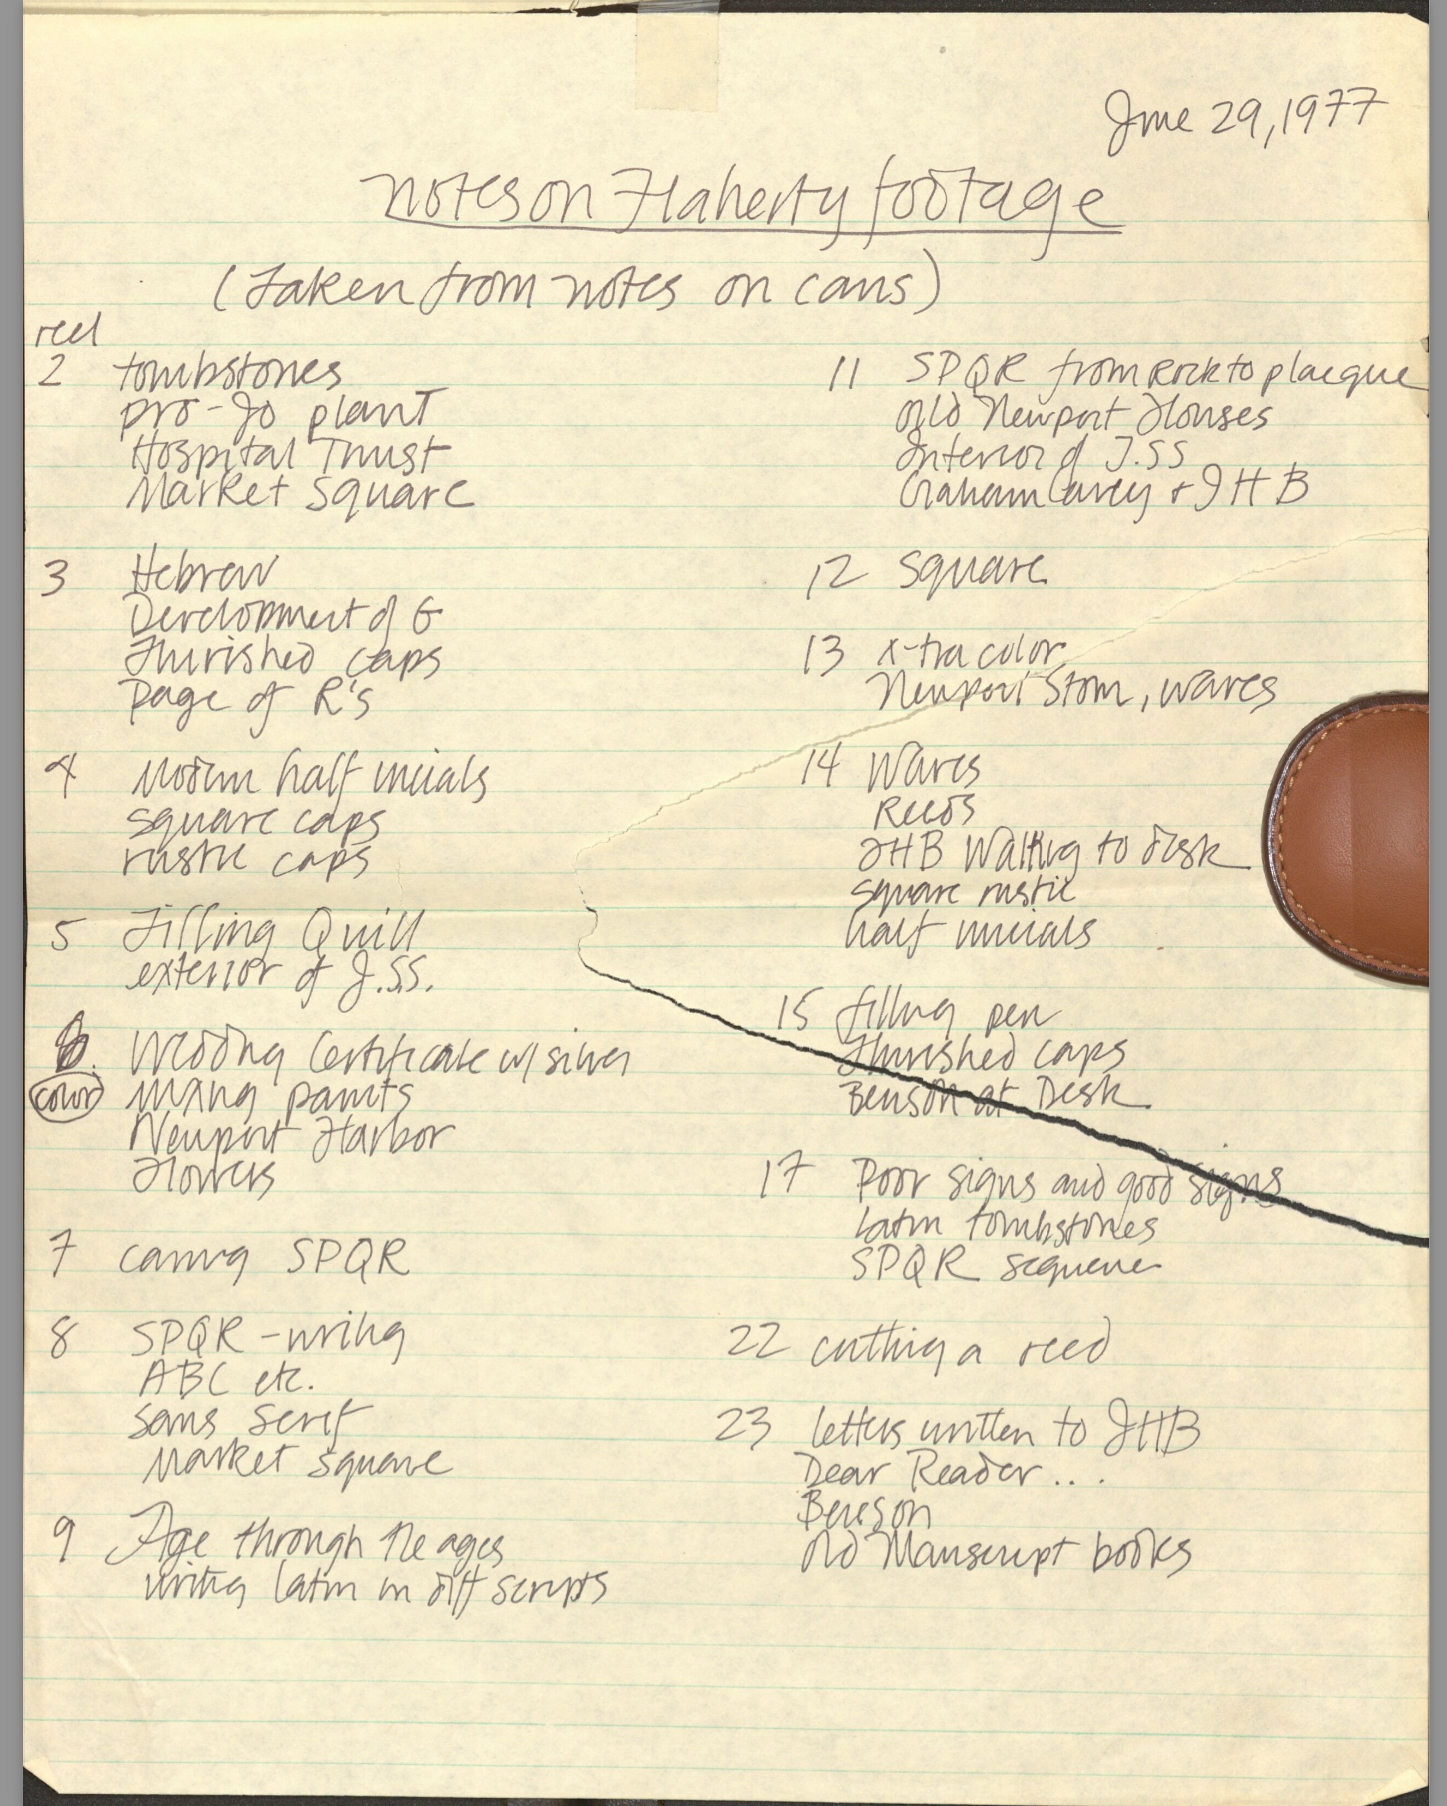 June 29, 1977
Notes on Flaherty footage
(taken from notes on cans)
reel
2 tombstones
pro-Jo plant
Hospital Trust
Market Square
3 Hebrew
Development of G
Flurished caps
Page of R's
4 Modern half uncials
square caps
rustic caps
5 Filling Quill
exterior of J.S.S.
6. Wedding Certificate w/ silver
color mixing paints
Newport Harbor
Flowers
7 carving SPQR
8 SPQR - writing
ABC etc.
sans serif
Market square
9 Age through the ages
writing latin in diff scripts
11 SPQR from Rock to placque
Old Newport Houses
Interior of J.SS
Graham Carey + JHB
12 Square
13 x-tra color
Newport Storm, waves
14 Waves
Reeds
JHB Walking to desk
square rustic
half uncials
15 filling pen
Flurished caps
Benson at Desk
17 Poor signs and good signs
Latin tombstones
SPQR sequence
22 cutting a reed
23 letters written to JHB
Dear Reader ...
Benson
Old Manuscript books